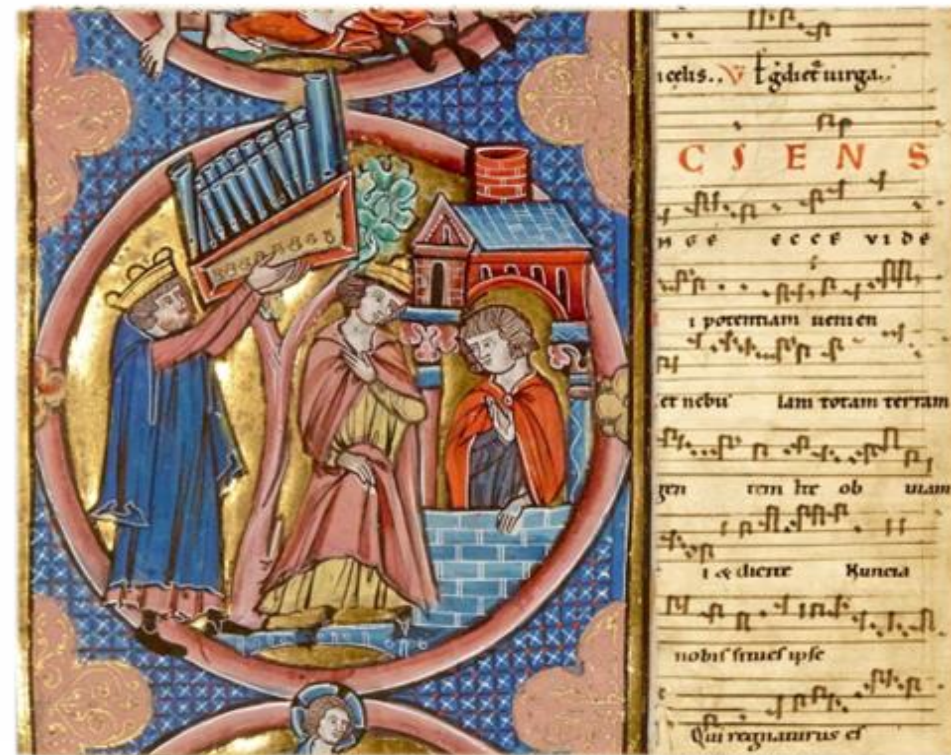 celis.. V̄ Egrdiet̄ uirga.
C I E N S
N G E E C C E V I D E
i potentiam uenien
et nebu lam totam terram
gen tem Ite ob uiam
i et dicite Nuncia
nobis si tu es ipse
Qui regnaturus es